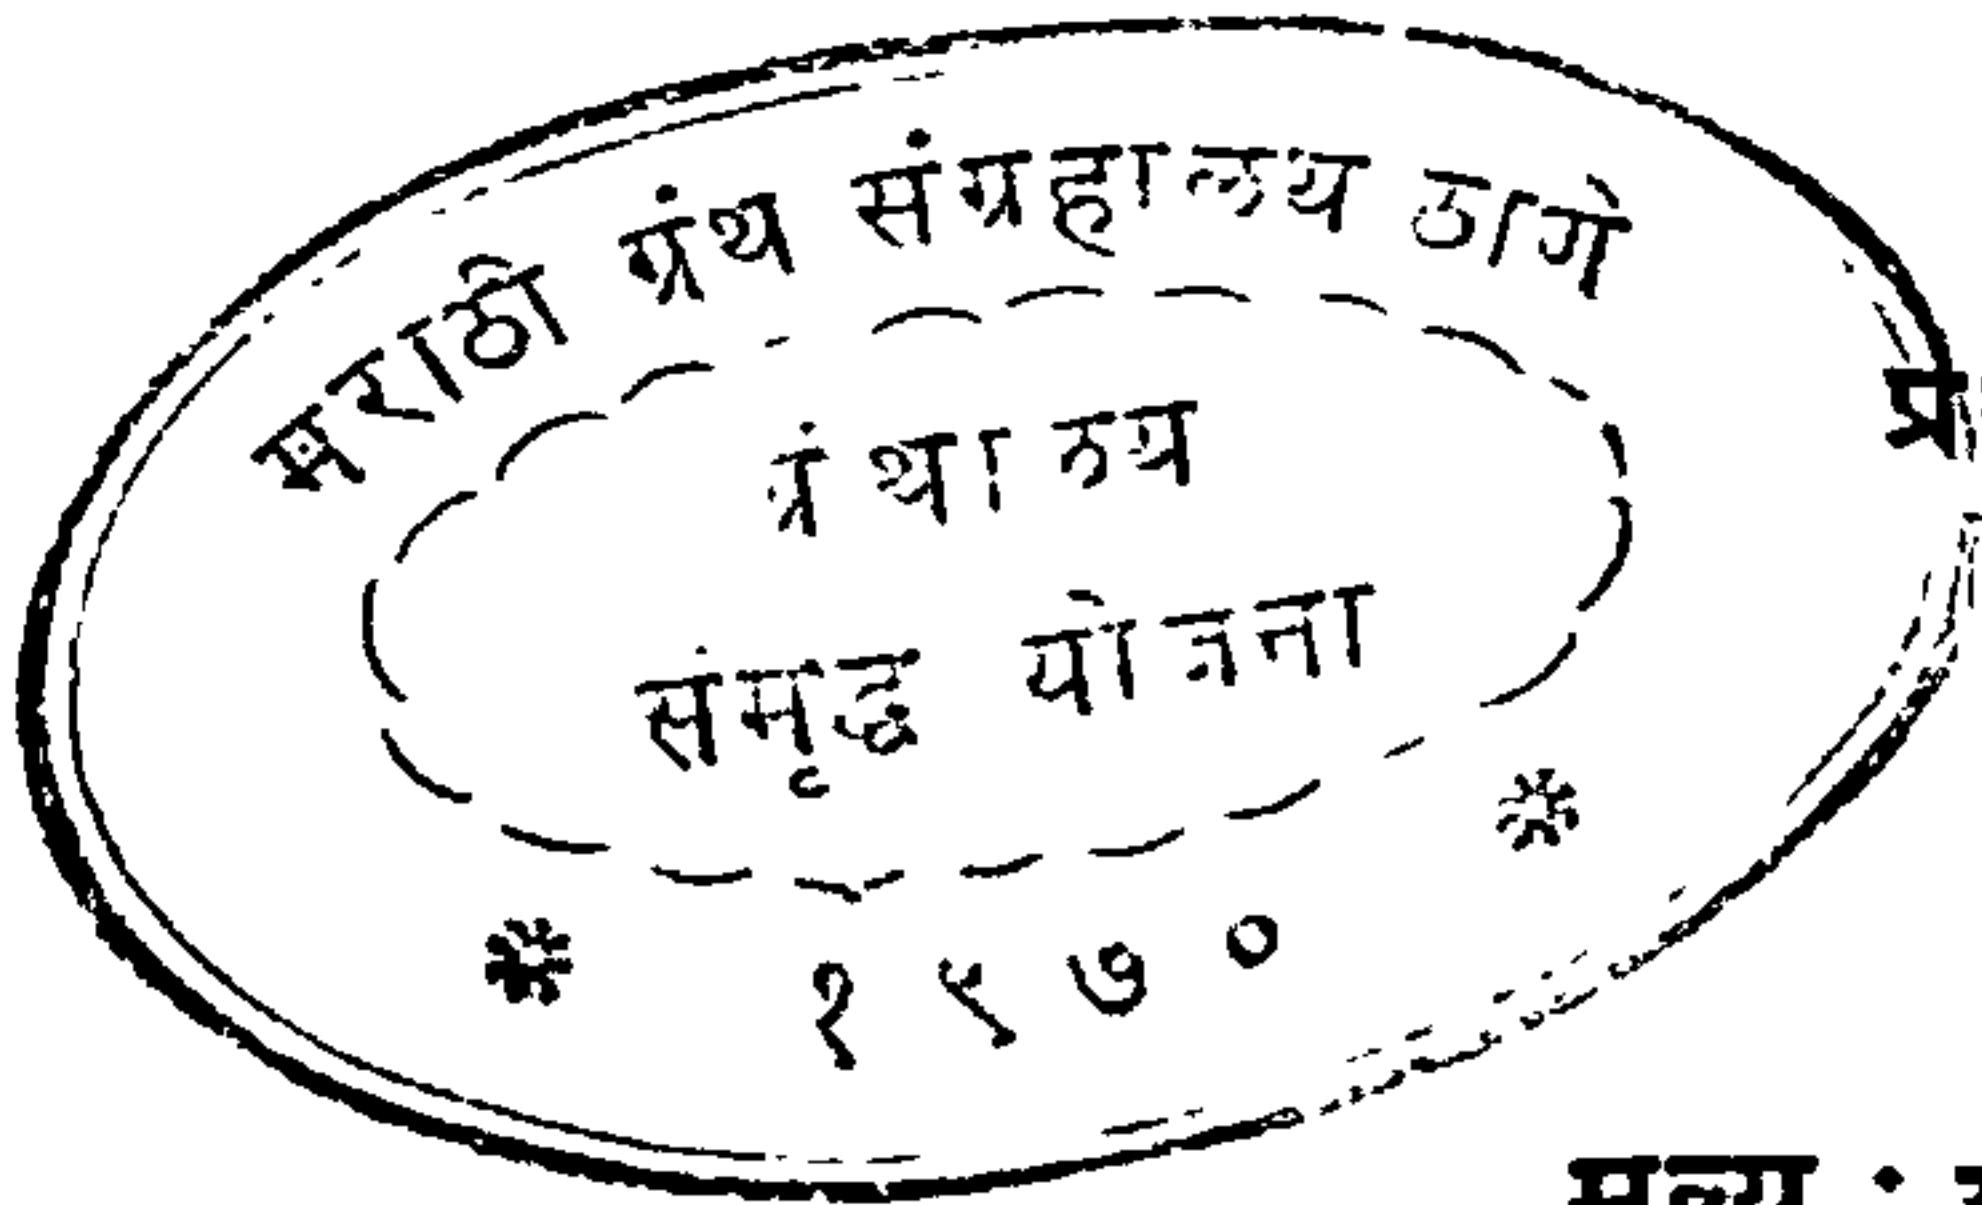 मराठी ग्रंथ संग्रहालय ठाणे
ग्रंथालय
संमृद्ध योजना
१९७०